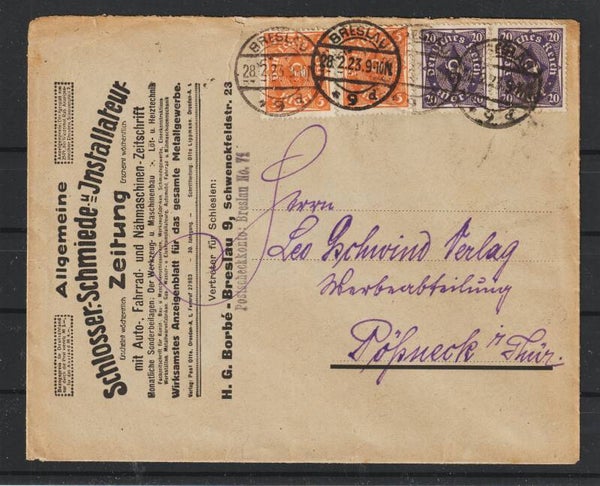 Allgemeine
Schlosser-, Schmiede- u. Installateur-
Erscheint wöchentlich Zeitung Erscheint wöchentlich
mit Auto-, Fahrrad- und Nähmaschinen-Zeitschrift
Monatliche Sonderbeilagen: Der Werkzeug- u. Maschinenbau Löt- u. Heiztechnik
Wirksamstes Anzeigenblatt für das gesamte Metallgewerbe.
Verlag: Paul Otto, Dresden-A. 1, Fernruf 27853 - 30. Jahrgang - Schriftleitung: Otto Lippmann, Dresden-A. 1
Vertreter für Schlesien:
H. G. Borbé - Breslau 9, Schwenckfeldstr. 23
Postscheckkonto: Breslau No. 71
BRESLAU
28.2.23
* P 6 *
BRESLAU
28.2.23.9-10N
* P 6 *
5
5
20 20
Deutsches Reich
20 20
Deutsches Reich
Herrn
Leo Gschwind Verlag
Werbeabteilung
Pößneck i/Thür.